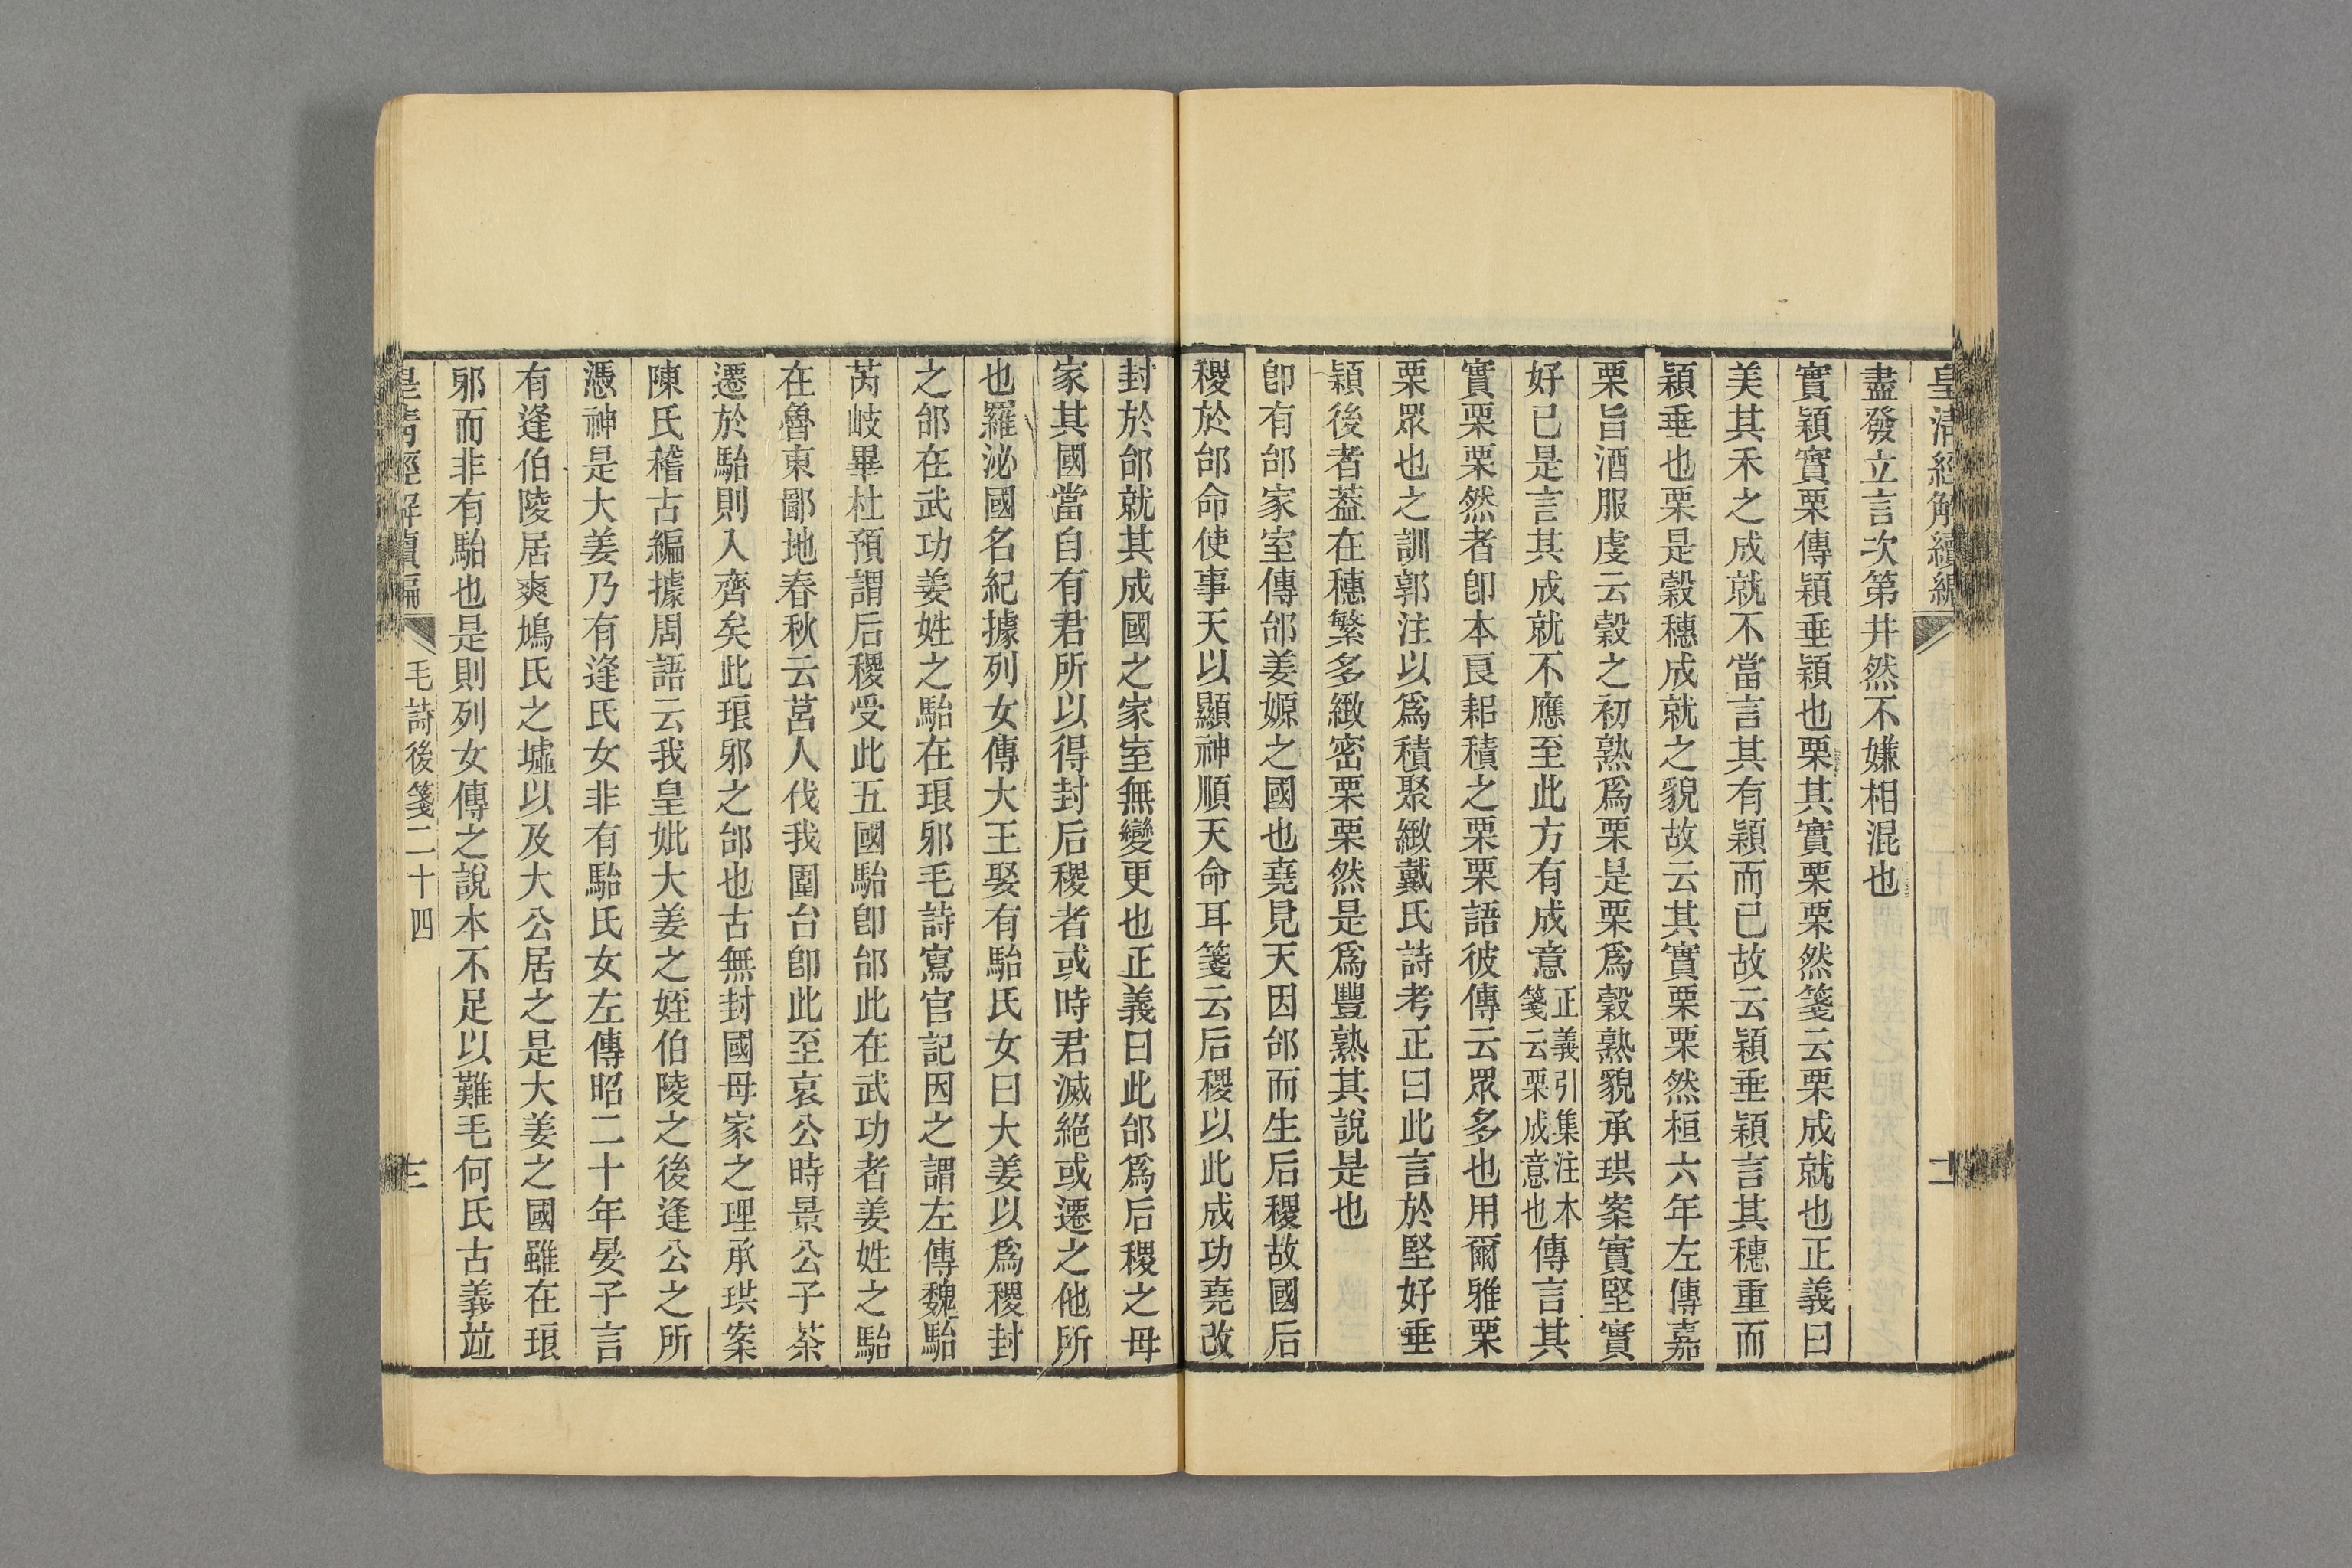 皇清經解續編
盡發立言次第井然不嫌相混也
實穎實栗傳穎垂穎也栗其實栗栗然箋云栗成就也正義曰
美其禾之成就不當言其有穎而已故云穎垂穎言其穗重而
穎垂也栗是穀穗成就之貌故云其實栗栗然桓六年左傳嘉
栗旨酒服虔云穀之初熟爲栗是栗爲穀熟貌承珙案實堅實
好已是言其成就不應至此方有成意正義引集注本箋云栗成意也傳言其
實栗栗然者卽本良耜積之栗栗語彼傳云眾多也用爾雅栗
栗眾也之訓郭注以爲積聚緻戴氏詩考正曰此言於堅好垂
穎後者葢在穗繁多緻密栗栗然是爲豐熟其說是也
卽有邰家室傳邰姜嫄之國也堯見天因邰而生后稷故國后
稷於邰命使事天以顯神順天命耳箋云后稷以此成功堯改
封於邰就其成國之家室無變更也正義曰此邰爲后稷之母
家其國當自有君所以得封后稷者或時君滅絕或遷之他所
也羅泌國名紀據列女傳大王娶有駘氏女曰大姜以爲稷封
之邰在武功姜姓之駘在琅邪毛詩寫官記因之謂左傳魏駘
芮岐畢杜預謂后稷受此五國駘卽邰此在武功者姜姓之駘
在魯東鄙地春秋云莒人伐我圍台卽此至哀公時景公子荼
遷於駘則入齊矣此琅邪之邰也古無封國母家之理承珙案
陳氏稽古編據周語云我皇妣大姜之姪伯陵之後逢公之所
憑神是大姜乃有逢氏女非有駘氏女左傳昭二十年晏子言
有逢伯陵居爽鳩氏之墟以及大公居之是大姜之國雖在琅
邪而非有駘也是則列女傳之說本不足以難毛何氏古義竝
皇清經解續編 毛詩後箋二十四